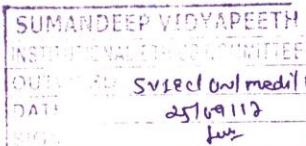 SUMANDEEP VIDYAPEETH
INSTITUTIONAL ETHICS COMMITTEE
SVIEC/ON/medi/
DATE 25/09/17
SIGN